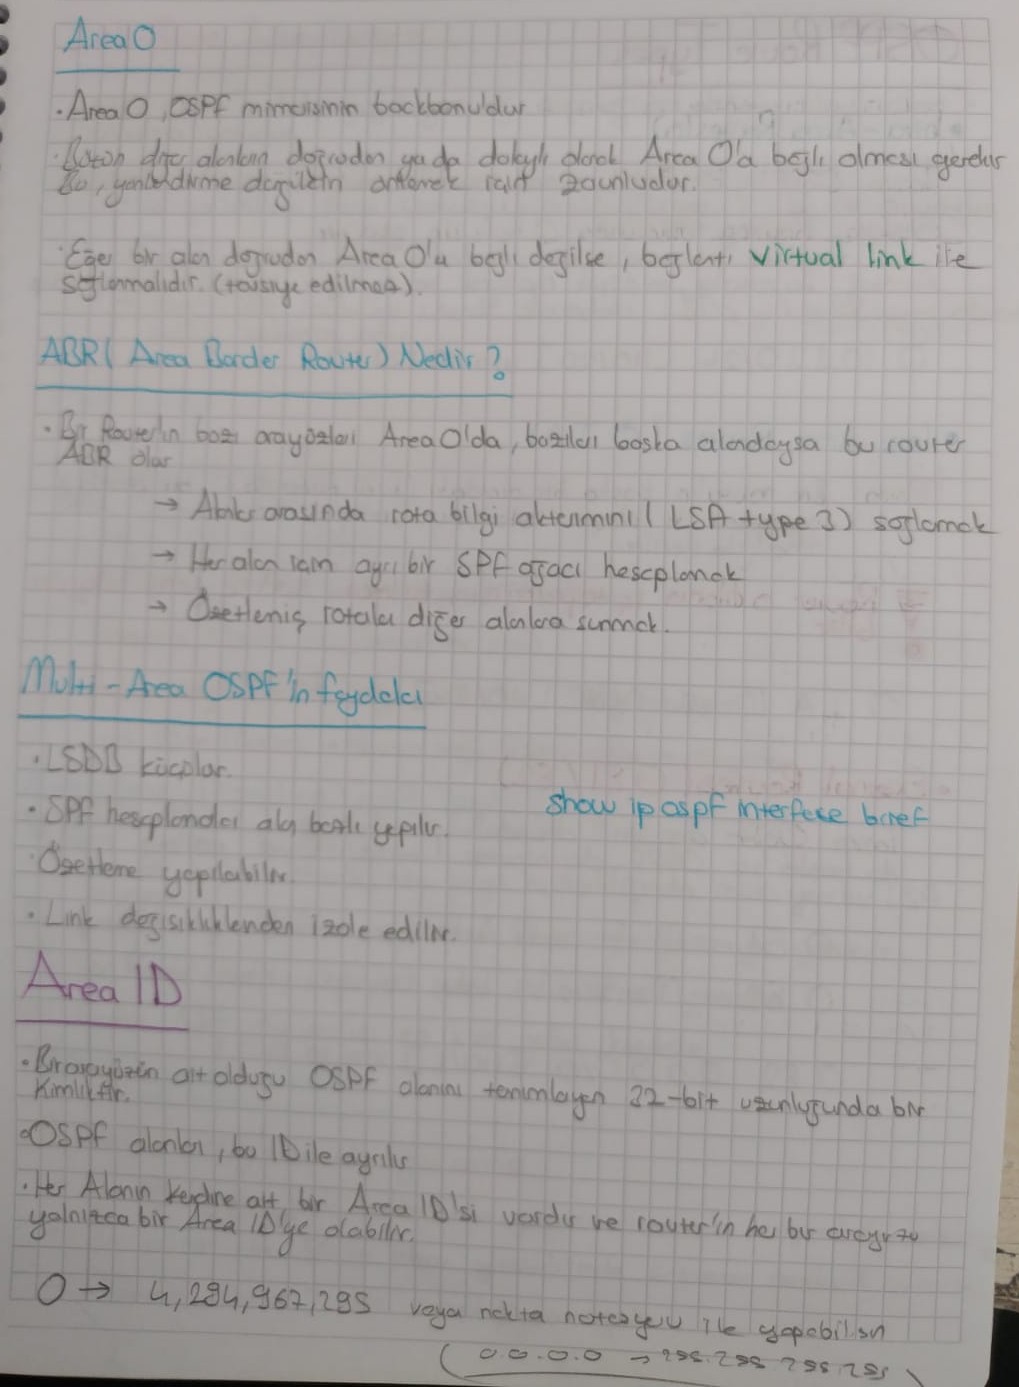 Area 0
· Area 0, OSPF mimarisinin backbonu'dur
· Bütün diğer alanların doğrudan ya da dolaylı olarak Area 0'a bağlı olması gerekir
Bu, yönlendirme döngülerini önlemek için zorunludur.
· Eğer bir alan doğrudan Area 0'a bağlı değilse, bağlantı virtual link ile
sağlanmalıdır. (tavsiye edilmez).
ABR( Area Border Router) Nedir?
· Bir Router'ın bazı arayüzleri Area 0'da, bazıları başka alandaysa bu router
ABR olur
→ Alanlar arasında rota bilgi aktarımını ( LSA type 3) sağlamak
→ Her alan için ayrı bir SPF ağacı hesaplamak
→ Özetlemiş rotaları diğer alanlara sunmak.
Multi-Area OSPF'in faydaları
· LSDB küçülür.
· SPF hesaplamaları alan bazlı yapılır.
show ip ospf interface brief
· Özetleme yapılabilir.
· Link değişikliklerinden izole edilir.
Area ID
· Bir arayüzün ait olduğu OSPF alanını tanımlayan 32-bit uzunluğunda bir
Kimliktir.
· OSPF alanları, bu ID ile ayrılır
· Her Alanın kendine ait bir Area ID'si vardır ve router'ın her bir arayüzü
yalnızca bir Area ID'ye olabilir.
0 → 4,294,967,295 veya nokta notasyonu ile yapabilirsin
( 0.0.0.0 → 255.255.255.255 )